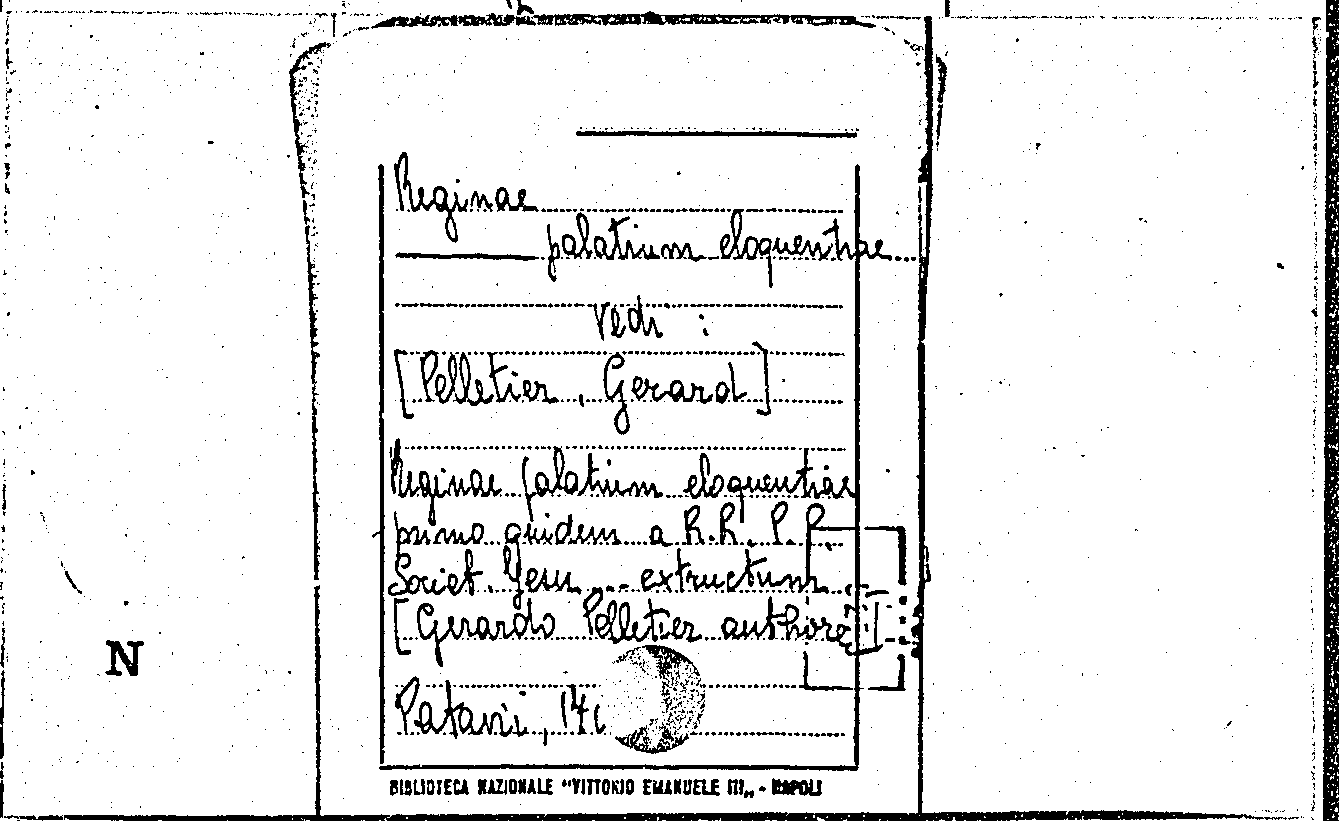 Reginae
palatium eloquentiae...
vedi :
[Pelletier, Gerard]
Reginae palatium eloquentiae
primo quidem a R.R. P.P.
Societ. Jesu ... extructum
[Gerardo Pelletier authore]
Patavii,
N
BIBLIOTECA NAZIONALE "VITTORIO EMANUELE III„ - NAPOLI